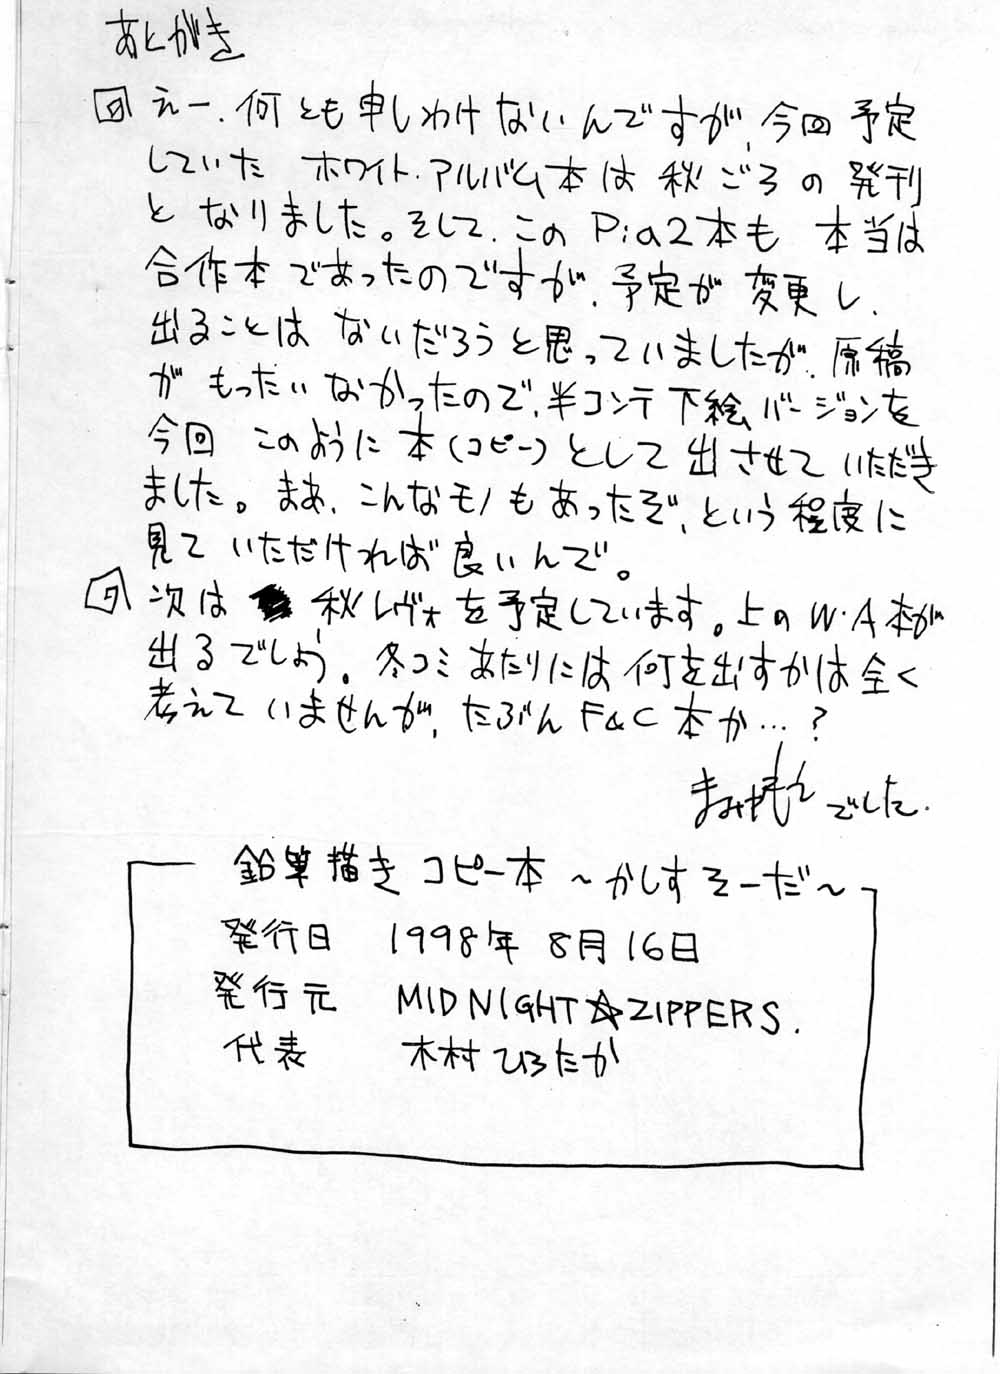 あとがき
えー、何とも申しわけないんですが、今回予定
していた ホワイト・アルバム本は 秋ごろの発刊
となりました。そして、この Pia2本も 本当は
合作本であったのですが、予定が変更し、
出ることは ないだろうと思っていましたが、原稿
が もったいなかったので、半コンテ下絵バージョンを
今回 このように 本(コピー)として出させていただき
ました。まあ、こんなモノもあったぞ、という程度に
見て いただければ良いんで。
次は 秋レヴォを予定しています。上のW・A本が
出るでしょう。冬コミあたりには何を出すかは全く
考えて いませんが、たぶんF&C本か…?
でした。
鉛筆描きコピー本 ～かしすそーだ～
発行日 1998年 8月16日
発行元 MIDNIGHT☆ZIPPERS.
代表 木村ひろたか